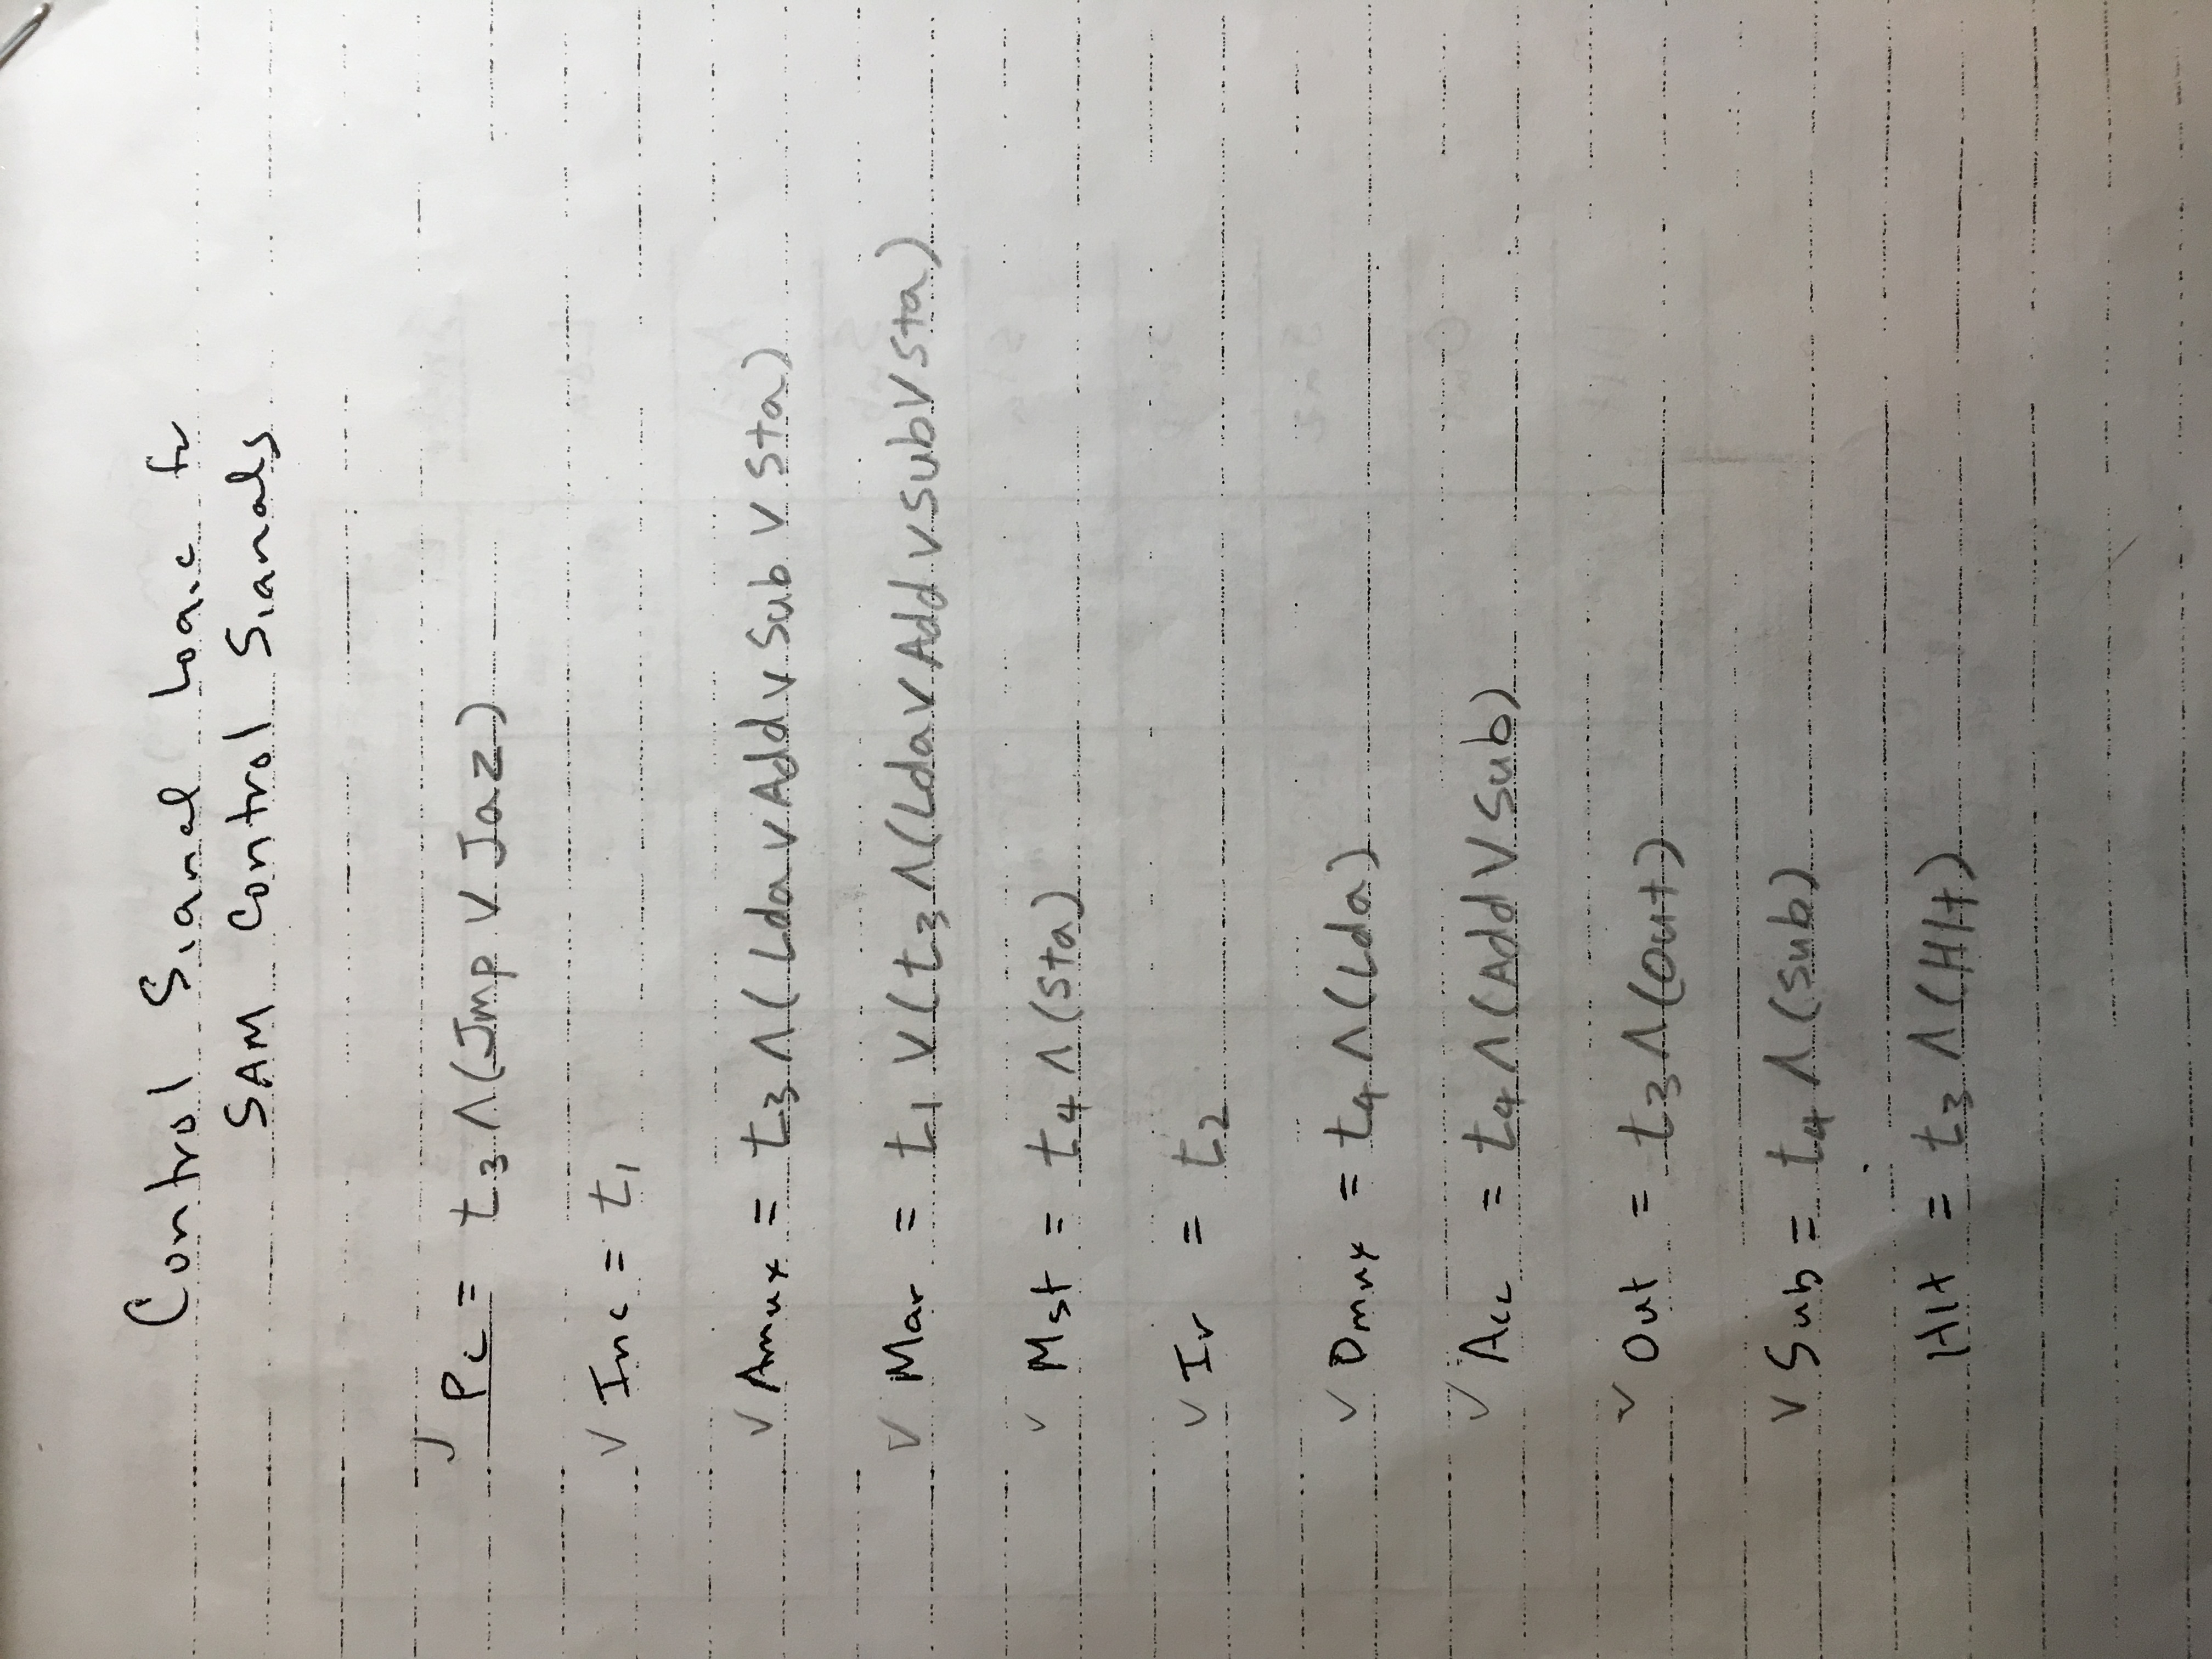 Control Signal Logic for
SAM Control Signals
✓ Pc = t3 ∧ (Jmp ∨ Jaz)
✓ Inc = t1
✓ Amux = t3 ∧ (Lda ∨ Add ∨ Sub ∨ Sta)
✓ Mar = t1 ∨ (t3 ∧ (Lda ∨ Add ∨ Sub ∨ Sta)
✓ Mst = t4 ∧ (Sta)
✓ Ir = t2
✓ Dmux = t4 ∧ (Lda)
✓ Acc = t4 ∧ (Add ∨ Sub)
✓ Out = t3 ∧ (Out)
✓ Sub = t4 ∧ (Sub)
Hlt = t3 ∧ (Hlt)